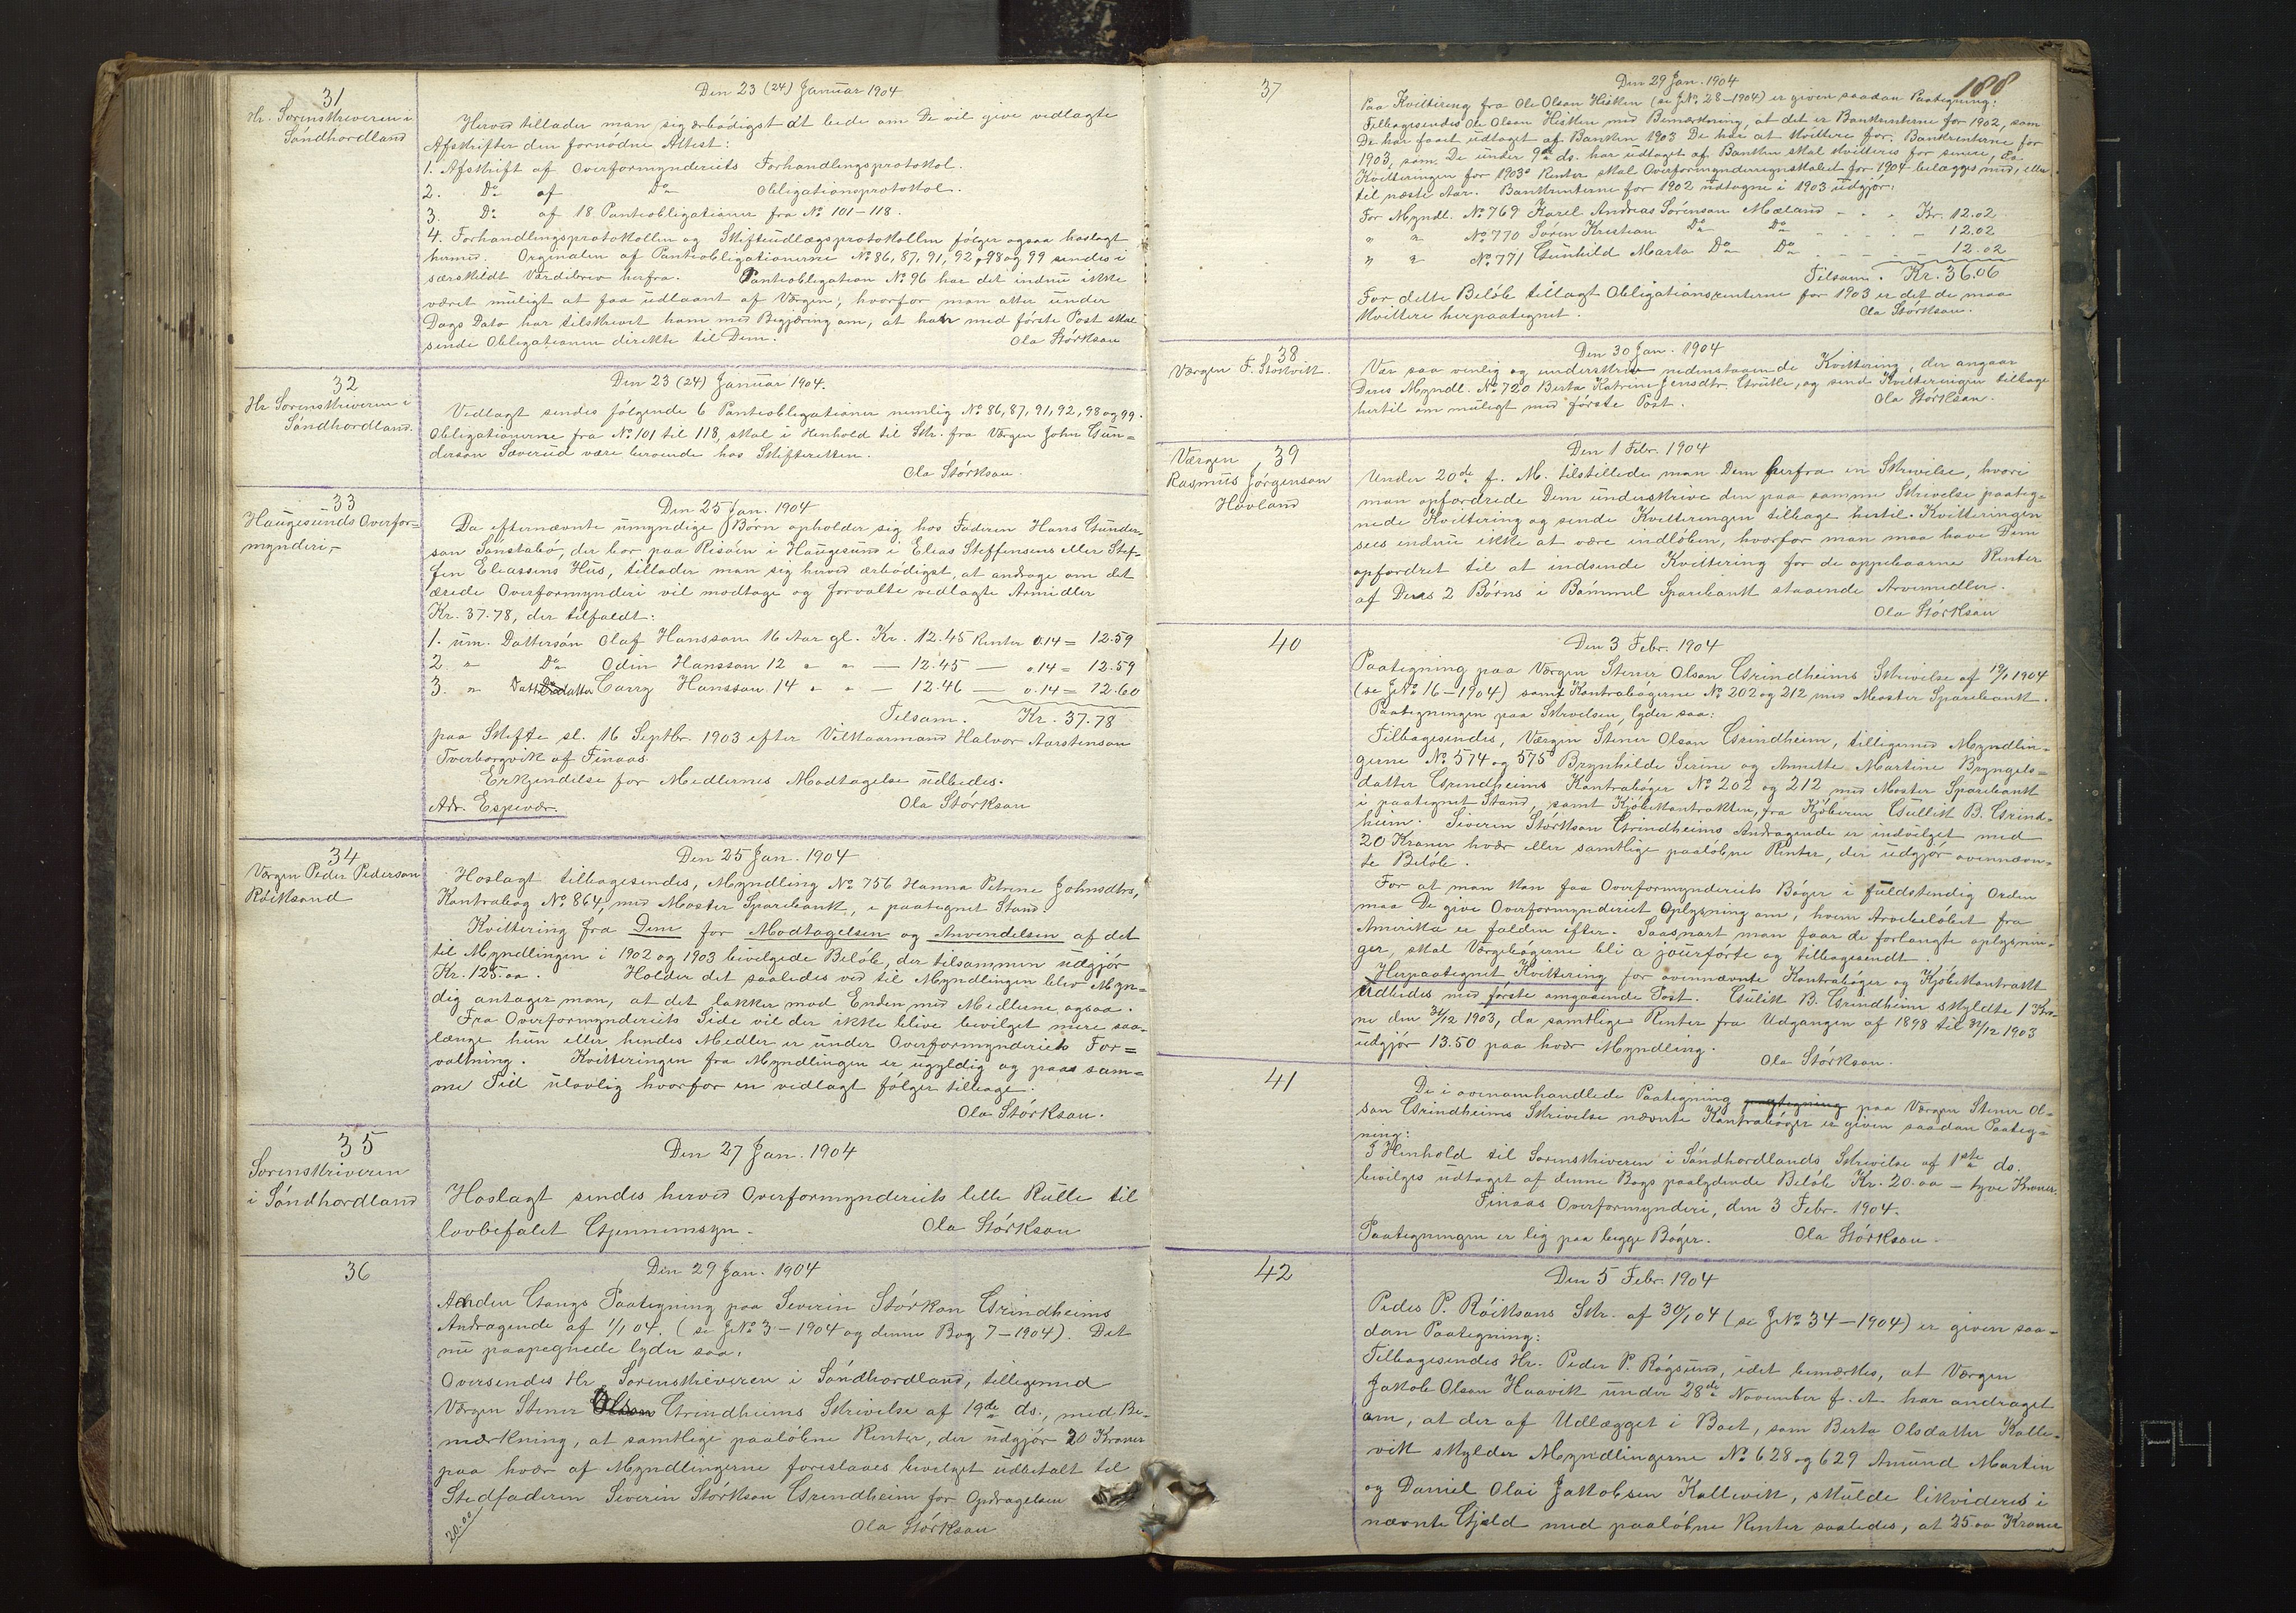 31
Hr. Sorenskriveren i
Søndhordland
Den 23 (24) Januar 1904
Herved tillader man sig ærbødigst at bede om De vil give vedlagte
Afskrifter den fornødne Attest:
1. Afskrift af Overformynderiets Forhandlingsprotokol.
2. Do af Do Obligationsprotokol.
3. Do af 18 Panteobligationer fra No 101-118.
4. Forhandlingsprotokollen og Skifteudlægsprotokollen følger ogsaa hoslagt
herved. Orginalen af Panteobligationerne No 86, 87, 91, 92, 98 og 99 sendes i
særskildt Værdibrev herfra. Panteobligation No 96 har det indnu ikke
været muligt at faa udlaant af Værgen, hvorfor man atter under
Dags Dato har tilskrevet ham med Begjæring om, at han med første Post skal
sende Obligationen direkte til Dem.
Ola Størkson
32
Hr Sorenskriveren i
Søndhordland.
Den 23 (24) Januar 1904.
Vedlagt sendes følgende 6 Panteobligationer nemlig No 86, 87, 91, 92, 98 og 99.
Obligationerne fra No 101 til 118, skal i Henhold til Skr. fra Værgen John Gun=
derson Sæverud være beroende hos Skifteretten.
Ola Størkson.
33
Haugesunds Overfor=
mynderi,-
Den 25 Jan. 1904
Da efternævnte umyndige Børn opholder sig hos Faderen Hans Gunder-
son Sønstabø, der bor paa Risøen i Haugesund i Elias Steffensens eller Stef-
fen Eliassens Hus, tillader man sig herved ærbødigst, at andrage om det
ærede Overformynderi vil modtage og forvalte vedlagte Arvmidler
Kr. 37.78, der tilfaldt:
1. um. Dattersøn Olaf Hansson 16 Aar gl. Kr. 12.45 Renter 0.14 = 12.59
2. " Do Odin Hansson 12 " " — 12.45 — 0.14 = 12.59
3. " Datterdatter Carry Hansson 14 " " — 12.46 — 0.14 = 12.60
Tilsam. Kr. 37.78
paa Skifte sl. 16 Septbr. 1903 efter Vilkaarmand Halvor Aarstenson
Tverborgvik af Finaas.
Erkjendelse for Medlernes Modtagelse udbedes.
Adr. Espevær.
Ola Størkson
34
Værgen Peder Pederson
Røiksand
Den 25 Jan. 1904
Hoslagt tilbagesendes, Myndling No 756 Hanna Petrine Johnsdtrs,
Kontrabog No 864, med Moster Sparebank, i paategnet Stand.
Kvittering fra Dem for Modtagelsen og Anvendelsen af det
til Myndlingen i 1902 og 1903 bevilgede Beløb, der tilsammen udgjør
Kr. 125.00. Holder det saaledes ved til Myndlingen blev Myn=
dig antager man, at det lakker mod Enden med Medlerne ogsaa.
Fra Overformynderiets Side vil der ikke blive bevilget mere saa-
længe hun eller hendes Medler er under Overformynderiets For=
valtning. Kvitteringen fra Myndlingen er ugyldig og paa sam=
me Tid ulovlig hvorfor en vedlagt følger tilbage.
Ola Størkson.
35
Sorenskriveren
i Søndhordland
Den 27 Jan. 1904
Hoslagt sendes herved Overformynderiets lette Rulle til
lovbefalet Gjennemsyn.
Ola Størkson
36
Den 29 Jan. 1904
Anden Gangs Paategning paa Severin Størkson Grindheims
Andragende af 1/1 04. (se JNo 3-1904 og denne Bog 7-1904). Det
nu paategnede lyder saa:
Oversendes Hr. Sorenskriveren i Søndhordland, tilligemed
Værgen Stener Olson Grindheims Skrivelse af 19de ds., med Be-
mærkning, at samtlige paaløbne Renter, der udgjør 20 Kroner
paa hver af Myndlingerne foreslaaes bevilget udbetalt til
Stedfaderen Severin Størkson Grindheim for Opdragelsen
20.00
Ola Størkson
188
37
Den 29 Jan. 1904
Paa Kvittering fra Ole Olson Hisken (se JNo 28-1904) er given saadan Paategning:
Tilbagesendes Ole Olson Hisken med Bemærkning, at det er Bankrenterne for 1902, som
De har faaet udtaget af Banken 1903 De har at kvittere for. Bankrenterne for
1903, som De under 9de ds. har udtaget af Banken skal kvitteres for senere, da
Kvitteringen for 1903s Renter skal Overformynderregnskabet for 1904 belægges med, eller
til næste Aar. Bankrenterne for 1902 udtagne i 1903 udgjør:
For Myndl. No 769 Karel Andreas Sørenson Mæland - - - Kr. 12.02
" " No 770 Søren Kristian Do Do - - - - 12.02
" " No 771 Gunhild Marta Do Do - - - - 12.02
Tilsam. Kr. 36.06
For dette Beløb tillagt Obligationsrenterne for 1903 er det de maa
kvittere herpaategnet.
Ola Størkson.
38
Værgen F. Stokvik.
Den 30 Jan. 1904
Vær saa venlig og underskriv nedenstaaende Kvittering, der angaar
Deres Myndl. No 720 Berta Katrine Jensdtr. Grutle, og send Kvitteringen tilbage
hertil om muligt med første Post.
Ola Størkson.
39
Værgen
Rasmus Jørgenson
Hovland
Den 1 Febr. 1904
Under 20de f. M. tilstillede man Dem herfra en Skrivelse, hvori
man opfordrede Dem underskrive den paa samme Skrivelse paateg=
nede Kvittering og sende Kvitteringen tilbage hertil. Kvitteringen
sees endnu ikke at være indløben, hvorfor man maa have Dem
opfordret til at indsende Kvittering for de oppebaarne Renter
af Deres 2 Børns i Bømmel Sparebank staaende Arvemedler.
Ola Størkson
40
Den 3 Febr. 1904
Paategning paa Værgen Stener Olson Grindheims Skrivelse af 19/1 1904
(se JNo 16-1904) samt Kontrabøgerne No 202 og 212 med Moster Sparebank.
Paategningen paa Skrivelsen, lyder saa:
Tilbagesendes, Værgen Stener Olson Grindheim, tilligemed Myndlin-
gerne No 574 og 575 Brynhilde Serine og Annette Martine Bryngels=
datter Grindheims Kontrabøger No 202 og 212 med Moster Sparebank
i paategnet Stand, samt Kjøbekontrakten, fra Kjøberen Gullik B. Grind=
heim. Severin Størkson Grindheims Andragende er indvilget med
20 Kroner hver eller samtlige paaløbne Renter, der udgjør ovennævn-
te Beløb.
For at man kan faa Overformynderiets Bøger i fuldstendig Orden
maa De give Overformynderiet Oplysning om, hvem Arvebeløbet fra
Amerika er falden efter. Saasnart man faar de forlangte oplysnin-
ger, skal Værgebøgerne bli a jourførte og tilbagesendt.
Herpaategnet Kvittering for ovennævnte Kontrabøger og Kjøbekontrakt
Udbedes med første omgaaende Post. Gullik B. Grindheim skyldte 1 Kro-
ne den 31/12 1903, da samtlige Renter fra Udgangen af 1898 til 31/12 1903
udgjør 13.50 paa hver Myndling.
Ola Størkson.
41
De i ovenomhandlede Paategning paategning paa Værgen Stener Ol-
son Grindheims Skrivelse nævnte Kontrabøger er given saadan Paateg=
ning:
I Henhold til Sorenskriveren i Søndhordlands Skrivelse af 1ste ds.
bevilges udtaget af denne Bogs paalydende Beløb Kr. 20.00 — tyve Kroner.
Finaas Overformynderi, den 3 Febr. 1904.
Paategningen er lig paa begge Bøger.
Ola Størkson.
42
Den 5 Febr. 1904
Peder P. Røiksons Skr. af 30/1 04 (se JNo 34-1904) er given saa-
dan Paategning:
Tilbagesendes Hr. Peder P. Røgsund, idet bemærkes, at Værgen
Jakob Olson Haavik under 28de November f. A. har andraget
om, at der af Udlægget i Boet, som Berta Olsdatter Kalle-
vik skylder Myndlingerne No 628 og 629 Amund Martin
og Daniel Olai Jakobsen Kallevik, skulde likvideres i
nævnte Gjeld med paaløbne Renter saaledes, at 25.00 Kroner